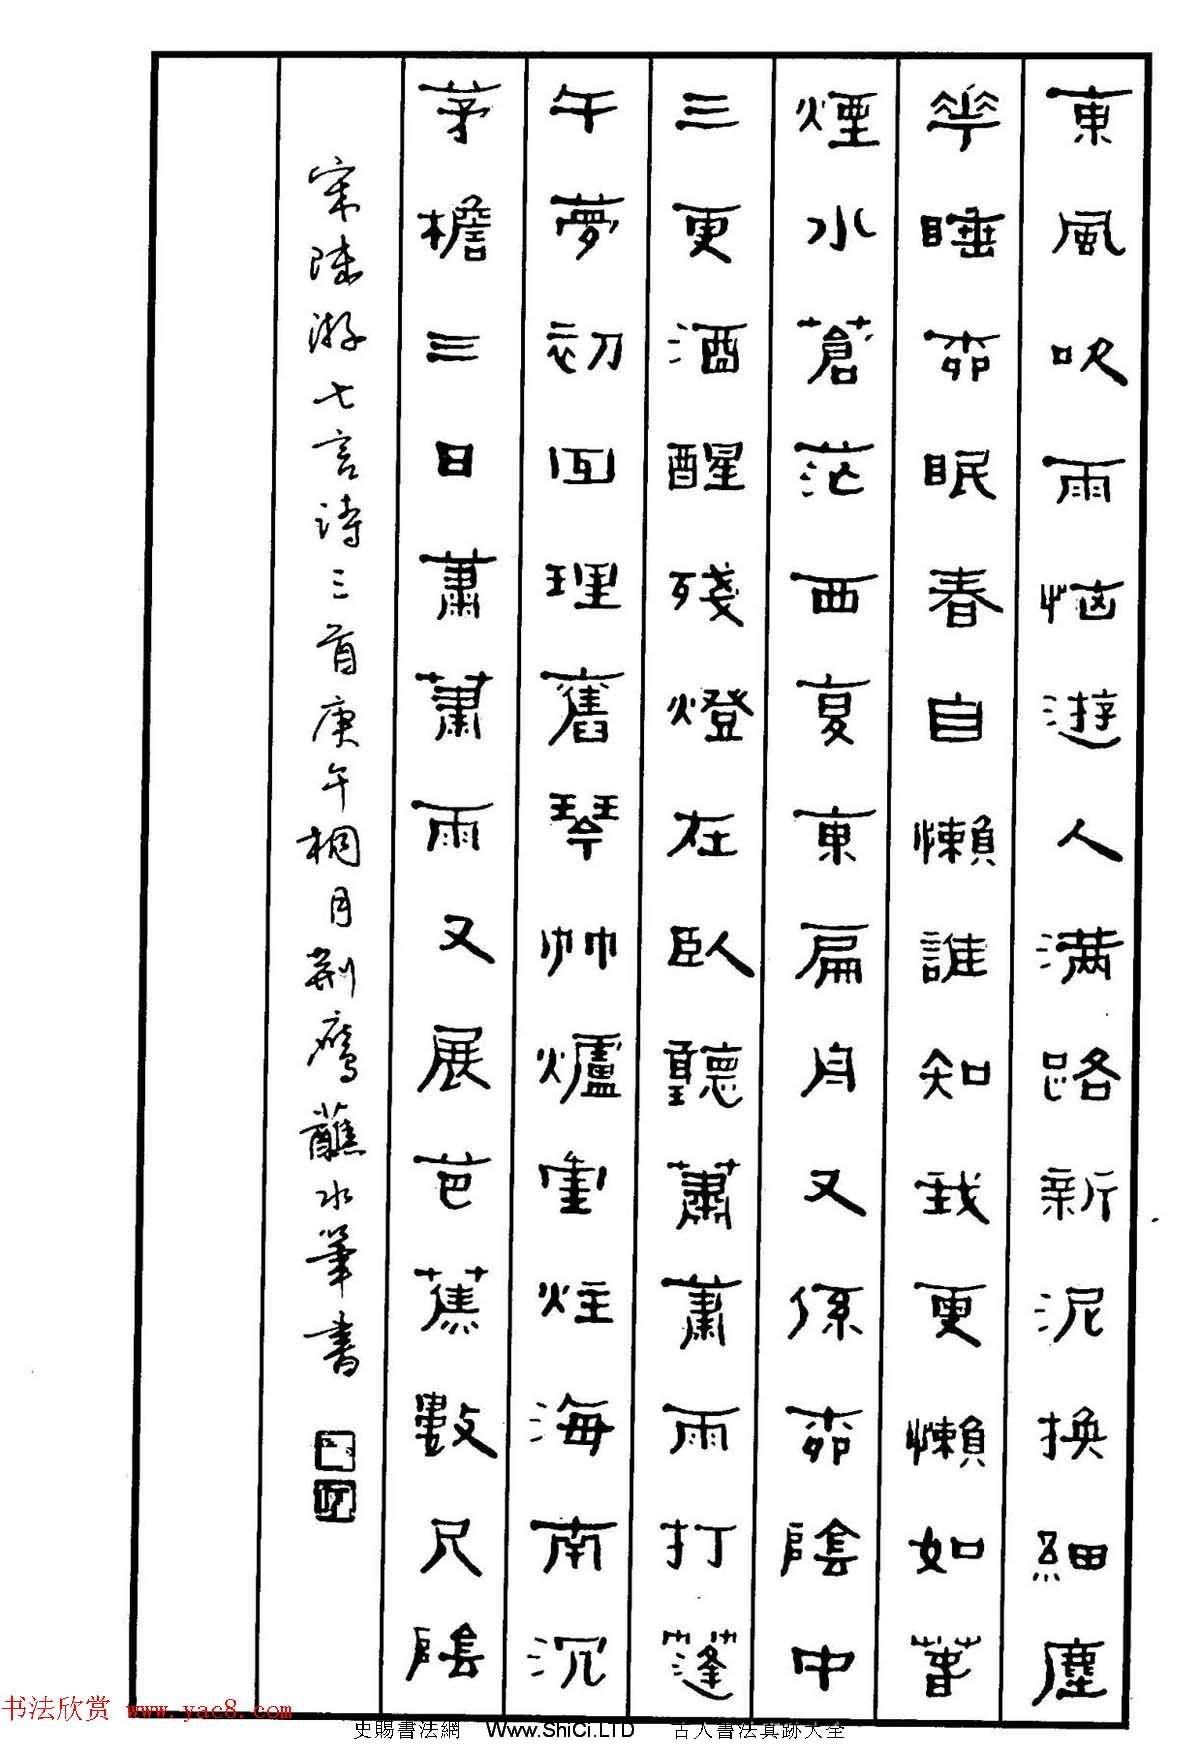 東風吹雨惱遊人滿路新泥換細塵
華睡柳眠春自懶誰知我更懶如春
煙水蒼茫西复東扁舟又係柳陰中
三更酒醒殘燈在臥聽蕭蕭雨打蓬
午夢初回理舊琴竹爐重炷海南沉
茅檐三日蕭蕭雨又展芭蕉數尺陰
宋陸游七言詩三首庚午桐月荆鷹蘸水筆書
书法欣赏 www.yac8.com
史賜書法網 Www.ShiCi.LTD 古人書法真跡大全